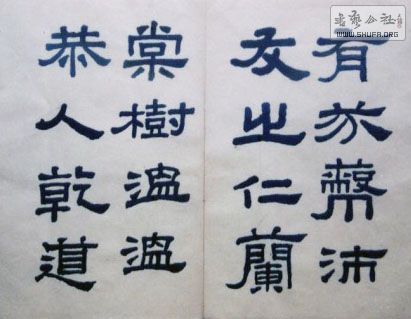 有蔽沛
友之仁蘭
棠樹溫溫
恭人乾道
书艺公社
WWW.SHUFA.ORG